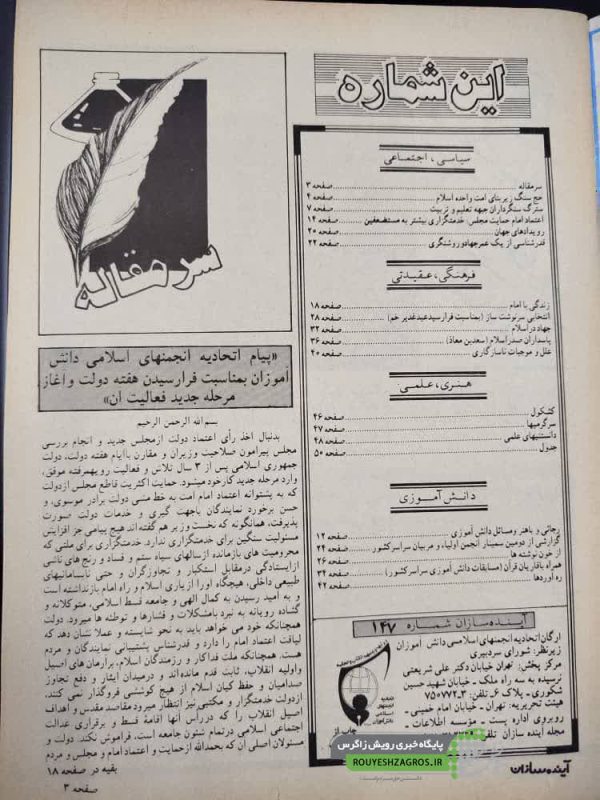 این شماره
سیاسی، اجتماعی
سرمقاله صفحه ۳
حج سنگ زیربنای امت واحده اسلام صفحه ۴
سترگ سنگرداران جبهه تعلیم و تربیت صفحه ۷
اعتماد امام حمایت مجلس: خدمتگزاری بیشتر به مستضعفین صفحه ۱۴
رویدادهای جهان صفحه ۲۰
قدرشناسی از یک عمر جهاد و روشنگری صفحه ۲۲
فرهنگی، عقیدتی
زندگی با امام صفحه ۱۸
انتخابی سرنوشت ساز (بمناسبت فرارسید عید غدیر خم) صفحه ۲۸
جهاد در اسلام صفحه ۳۲
پاسداران صدر اسلام (سعدبن معاذ) صفحه ۳۶
علل و موجبات ناسازگاری صفحه ۴۰
هنری، علمی
کشکول صفحه ۴۶
سرگرمیها صفحه ۴۷
دانستنیهای علمی صفحه ۴۸
جدول صفحه ۵۰
دانش آموزی
رجائی و باهنر و مسائل دانش آموزی صفحه ۱۲
گزارشی از دومین سمینار انجمن اولیاء و مربیان سراسر کشور صفحه ۲۴
از خون نوشته ها صفحه ۲۶
همراه باقاریان قرآن (مسابقات دانش آموزی سراسر کشور) صفحه ۳۴
ره آوردها صفحه ۴۲
آینده سازان شماره ۱۴۷
ارگان اتحادیه انجمنهای اسلامی دانش آموزان
زیرنظر: شورای سردبیری
مرکز پخش: تهران خیابان دکتر علی شریعتی
نرسیده به سه راه ملک - خیابان شهید حسین
شکوری - پلاک ۶ - تلفن: ۷۵۰۷۷۲-۳
هیئت تحریریه: تهران - خیابان امام خمینی -
روبروی اداره پست - مؤسسه اطلاعات -
مجله آینده سازان تلفن
چاپ از
سرمقاله
«پیام اتحادیه انجمنهای اسلامی دانش
آموزان بمناسبت فرارسیدن هفته دولت و آغاز
مرحله جدید فعالیت آن»
بسم الله الرحمن الرحیم
بدنبال اخذ رأی اعتماد دولت از مجلس جدید و انجام بررسی
مجلس پیرامون صلاحیت وزیران و مقارن باایام هفته دولت، دولت
جمهوری اسلامی پس از ۳ سال تلاش و فعالیت رویهمرفته موفق،
وارد مرحله جدید کار خود میشود. حمایت اکثریت قاطع مجلس از دولت
که به پشتوانه اعتماد امام امت به خط مشی دولت برادر موسوی، و
حسن برخورد نمایندگان باجهت گیری و خدمات دولت صورت
پذیرفت، همانگونه که نخست وزیر هم گفته اند هیچ پیامی جز افزایش
مسئولیت سنگین برای خدمتگزاری ندارد. خدمتگزاری برای ملتی که
محرومیت های بازمانده از سالهای سیاه ستم و فساد و رنج های ناشی
از ایستادگی در مقابل استکبار و تجاوزگران و حتی نابسامانیهای
طبیعی داخلی، هیچگاه او را از یاری اسلام و راه امام بازنداشته است
و به امید رسیدن به کمال الهی و جامعه قسط اسلامی، متوکلانه و
گشاده رویانه به نبرد بامشکلات و فشارها و توطئه ها میرود. دولت
همچنانکه خود می خواهد باید به نحو شایسته و عملا نشان دهد که
لیاقت اعتماد امام را دارد و قدرشناس پشتیبانی نمایندگان و مردم
هست. همچنانکه ملت فداکار و رزمندگان اسلام، بر آرمان های اصیل
و اولیه انقلاب، ثابت قدم مانده‌اند و درمیدان ایثار و دفع تجاوز
صدامیان و حفظ کیان اسلام از هیچ کوششی فروگذار نمی کنند،
از دولت خدمتگزار و مکتبی نیز انتظار میرود مقاصد مقدس و اهداف
اصیل انقلاب را که در رأس آنها اقامة قسط و برقراری عدالت
اجتماعی اسلامی در تمام شئون جامعه است، فراموش نکند. دولت و
مسئولان اصلی آن که بحمدالله از حمایت و اعتماد امام و مجلس و مردم
بقیه در صفحه ۱۸
صفحه ۳
آینده سازان
پایگاه خبری رویش زاگرس
ROUYESHZAGROS.IR